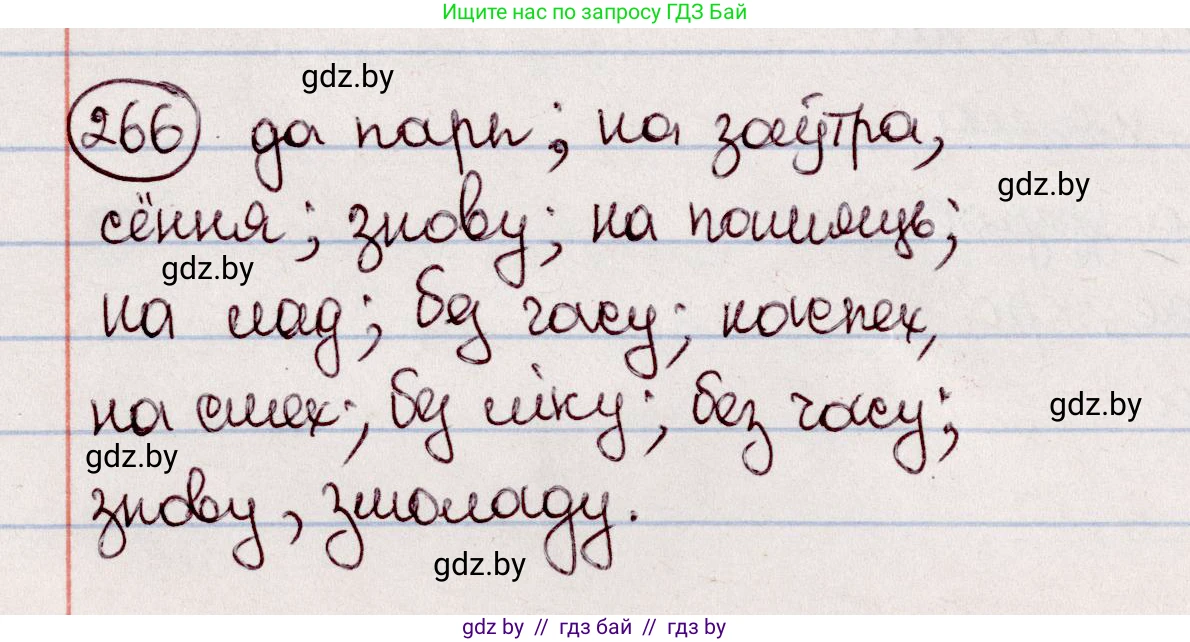 Ищите нас по запросу ГДЗ Бай
gdz.by
266 да пары; на заўтра,
gdz.by
сёння; знову; на памяць;
gdz.by
на лад; без часу; наспех,
на смех; без ліку; без часу;
gdz.by
gdz.by
знову, змоладу.
gdz.by
gdz by // гдз бай // gdz by